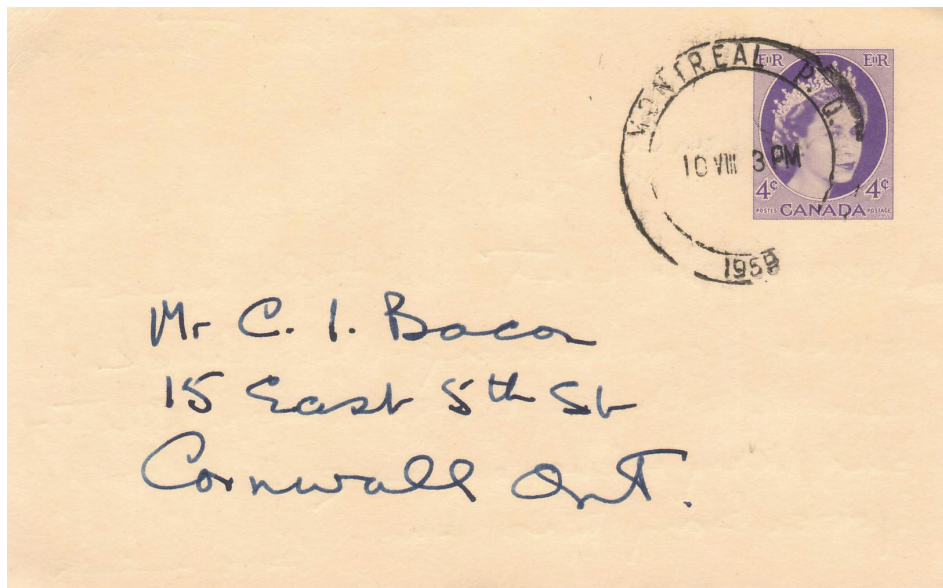 MONTREAL P. Q.
10 VIII 3 PM
1959
EIIR EIIR
4¢ 4¢
POSTES CANADA POSTAGE
Mr C. I. Bacon
15 East 5th St
Cornwall Ont.